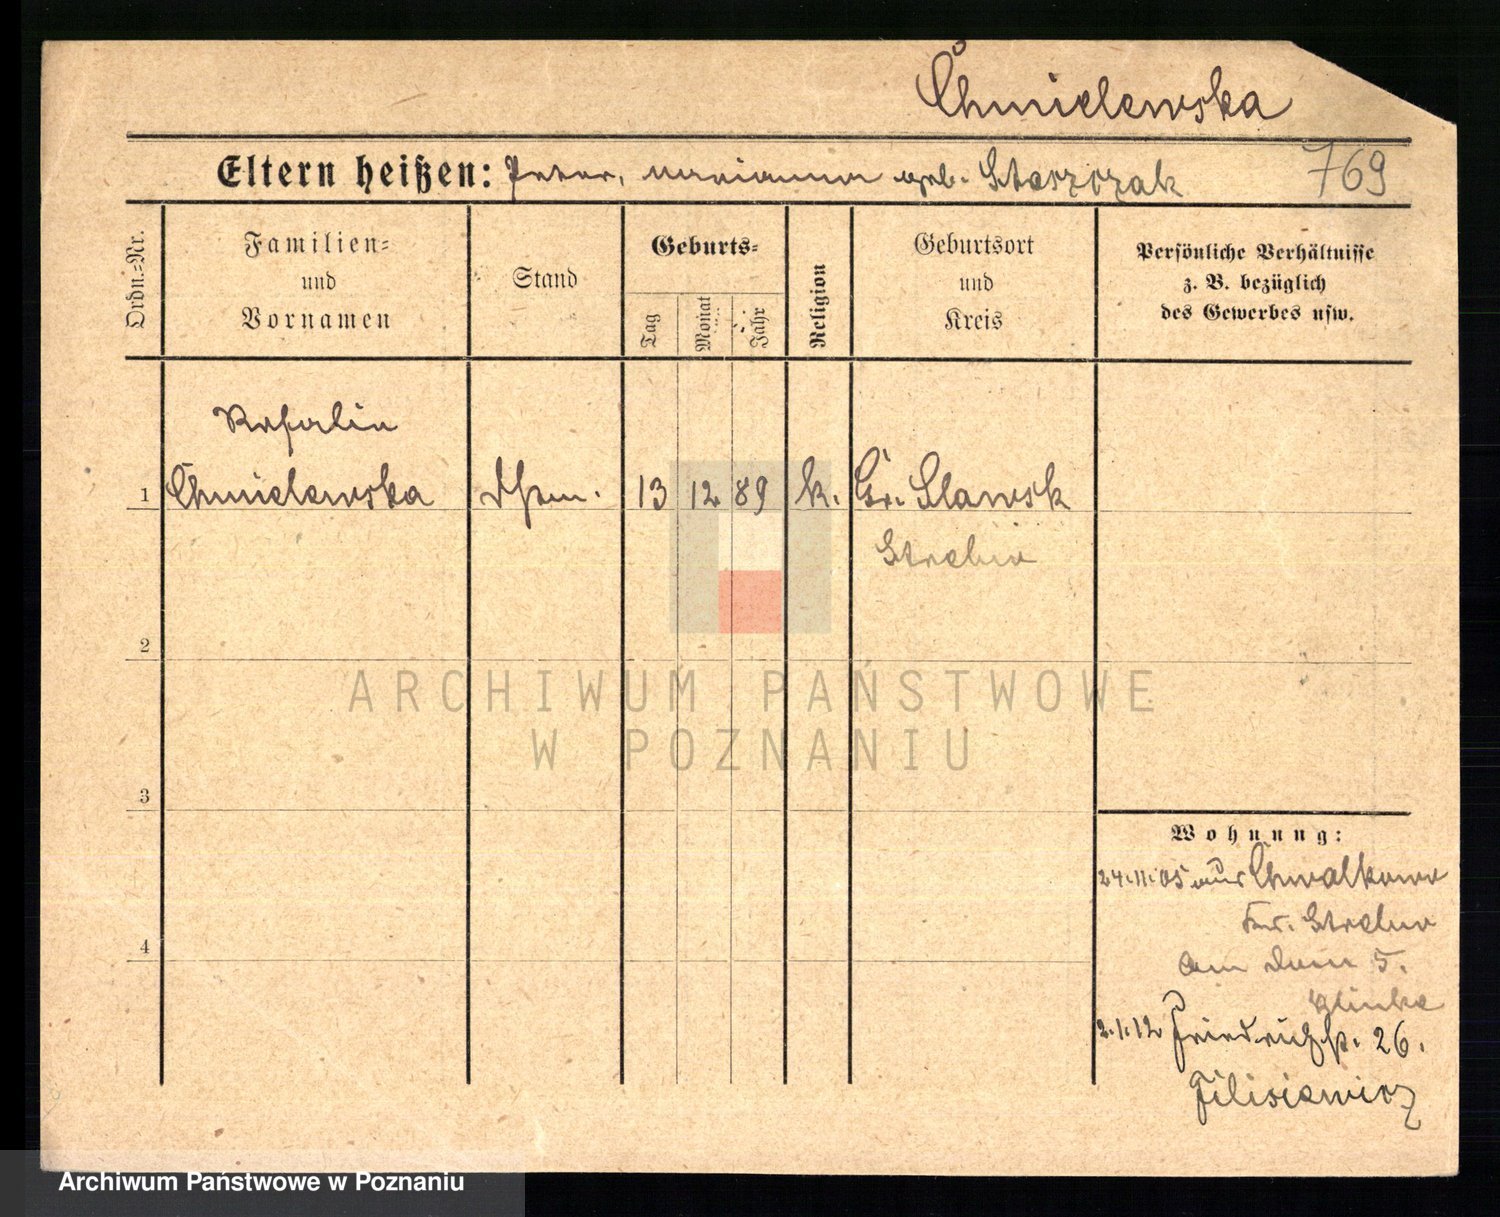 Chmielewska
Eltern heißen: Peter, Marianna geb. Staszczak
769
Ordn.-Nr.
Familien-
und
Vornamen
Stand
Geburts-
Tag
Monat
Jahr
Religion
Geburtsort
und
Kreis
Persönliche Verhältnisse
z. B. bezüglich
des Gewerbes usw.
Rosalie
1 Chmielewska 13 12 89 k. Gr. Slawsk
Strelno
ARCHIWUM PAŃSTWOWE
W POZNANIU
2
3
4
Wohnung:
24.11.05 aus Chwalkowo
Kr. Strelno
am Dom 5.
Glinka
2.1.12 Friedrichstr. 26.
Filisiewicz
Archiwum Państwowe w Poznaniu